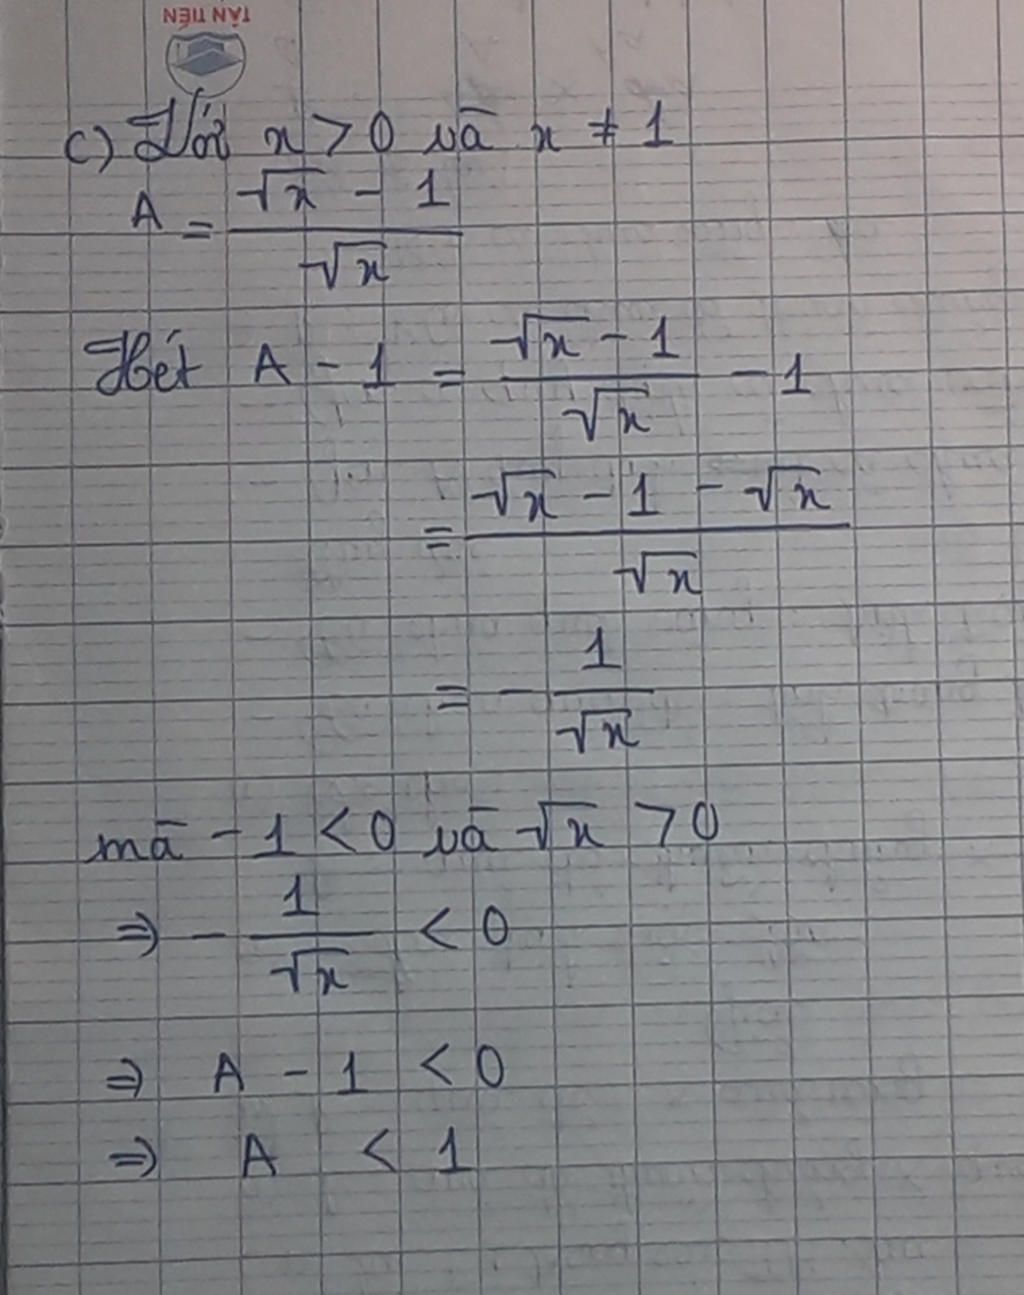 TÂN TIẾN
c) Với x > 0 và x ≠ 1
A = (√x - 1)/√x
Xét A - 1 = (√x - 1)/√x - 1
= (√x - 1 - √x)/√x
= - 1/√x
mà - 1 < 0 và √x > 0
⇒ - 1/√x < 0
⇒ A - 1 < 0
⇒ A < 1